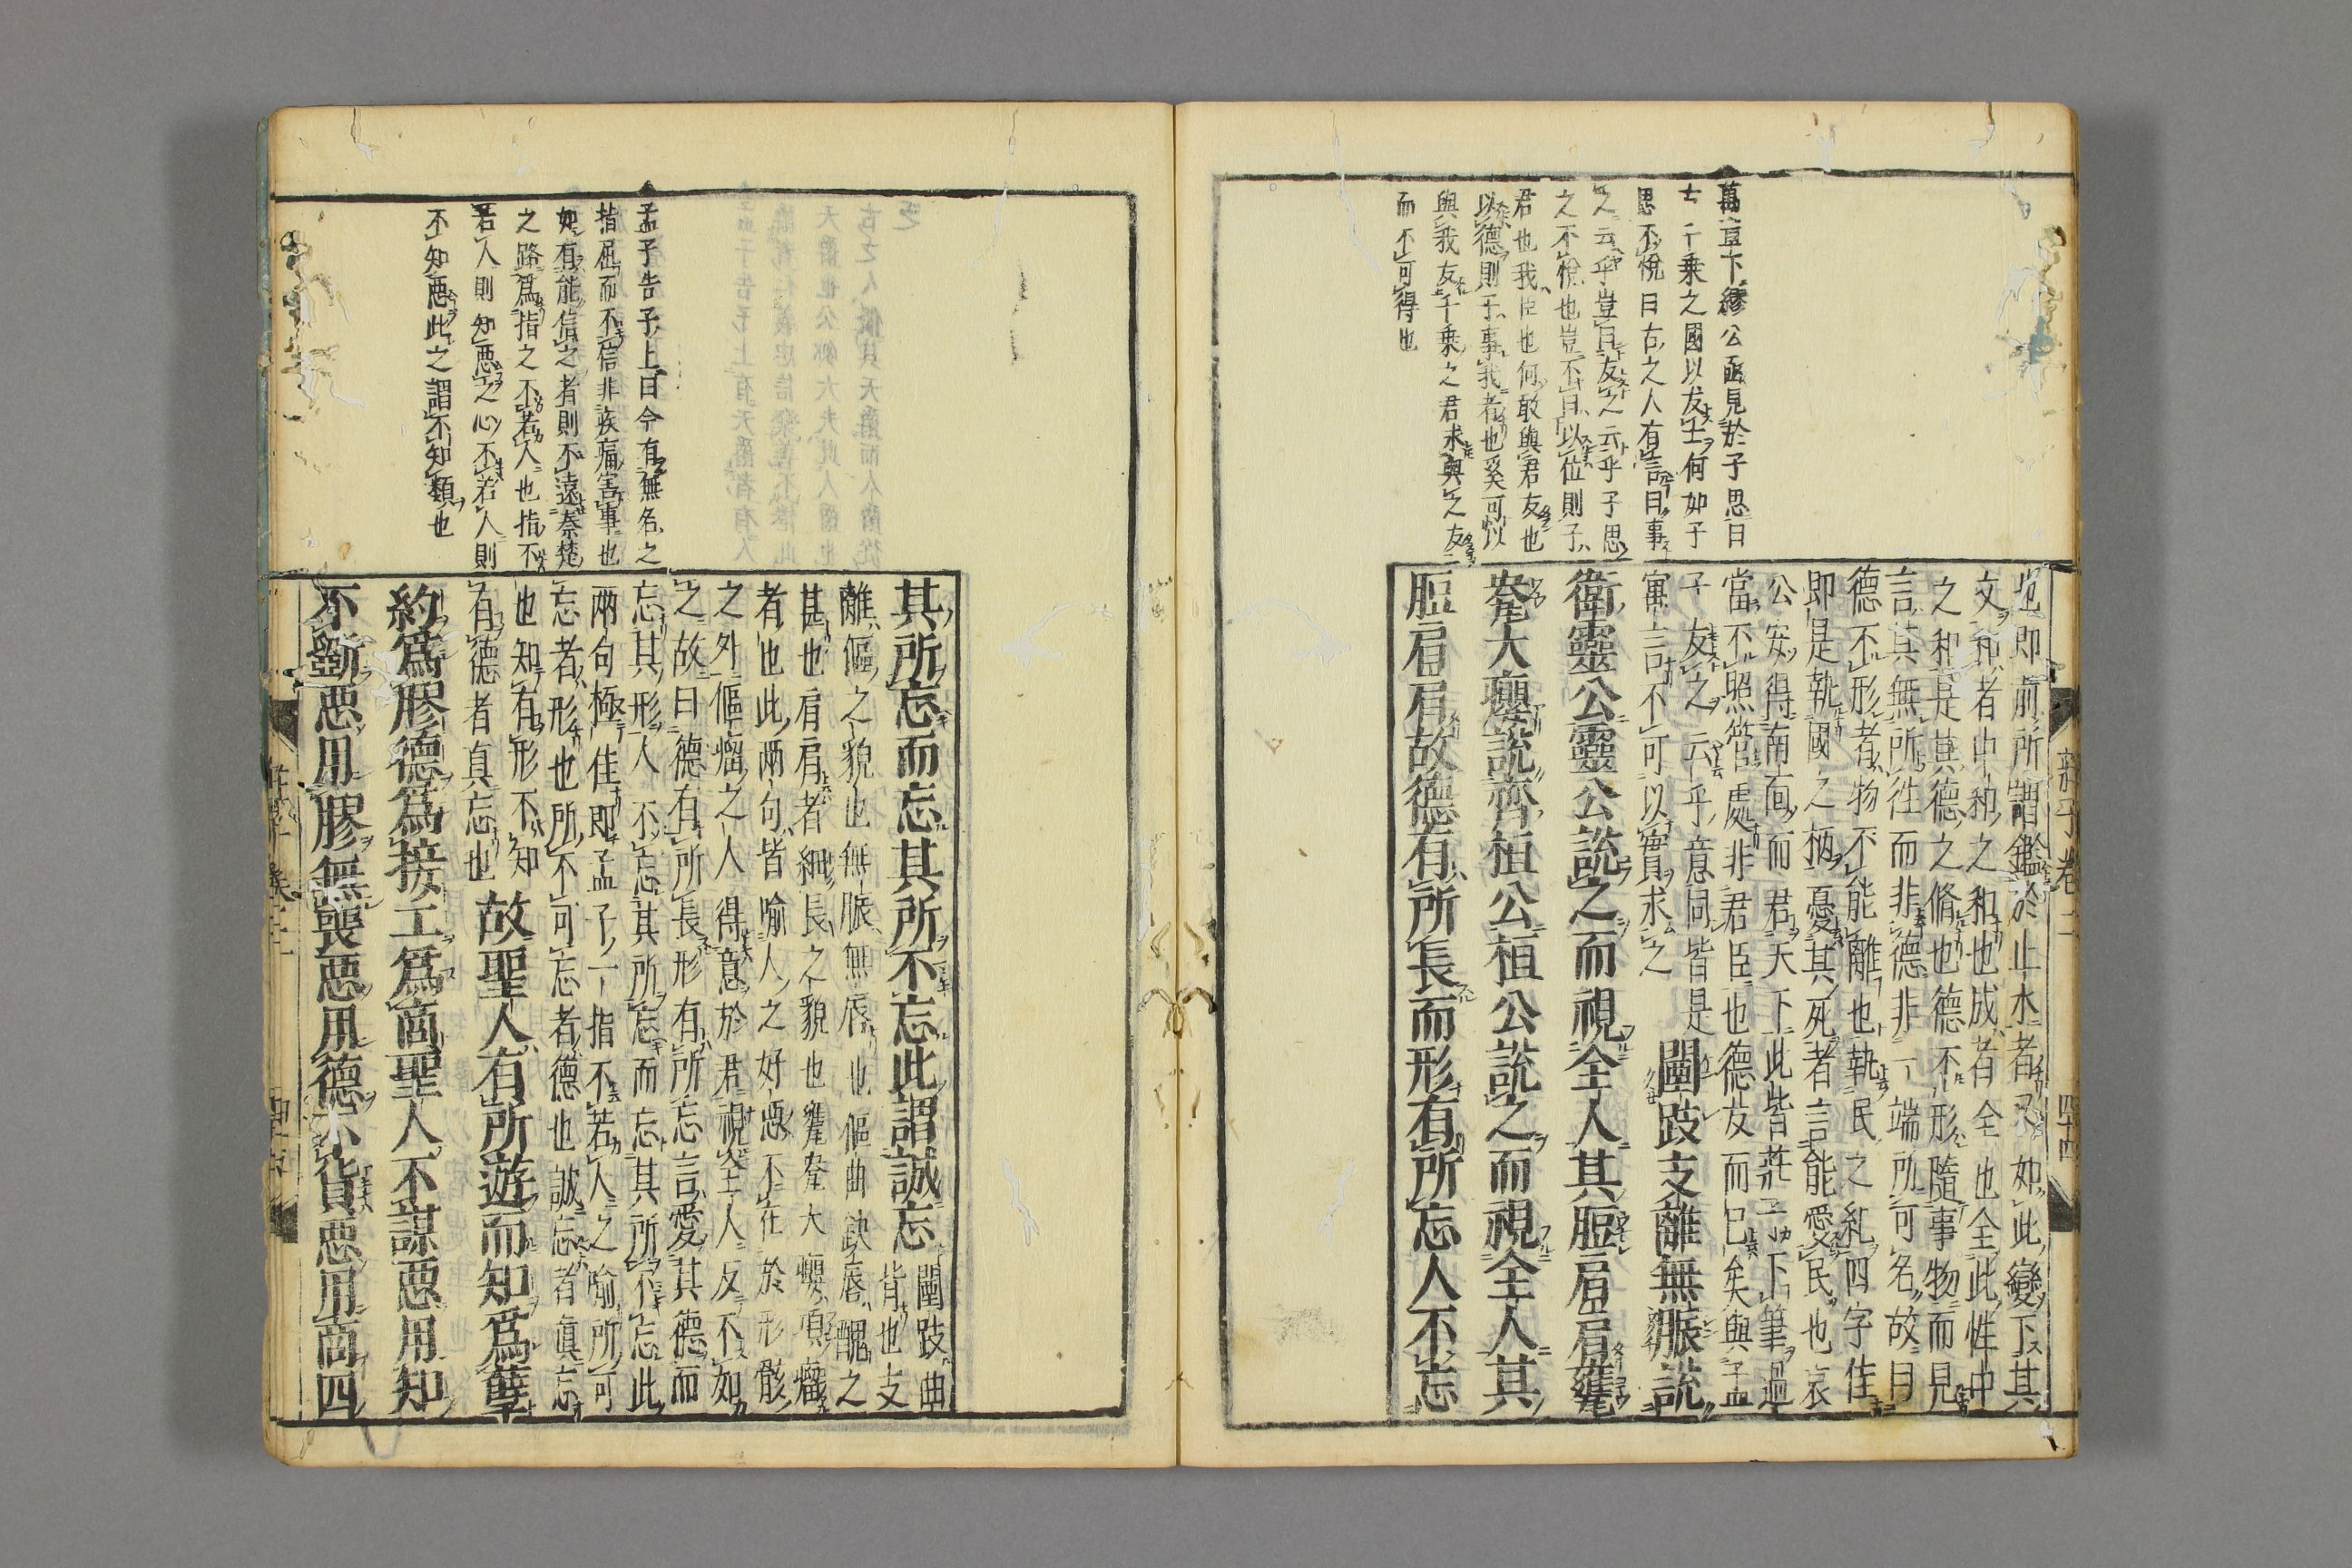 萬章下繆公亟見於子思曰
古千乘之國以友士何如子
思不悅曰古之人有言曰事
之云乎豈曰友之云乎子思
之不悅也豈不曰以位則子
君也我臣也何敢與君友也
以德則子事我者也奚可以
與我友千乘之君求與之友
而不可得也
也即前所謂鑑於止水者又如此變下其
文和者中和之和也成者全也全此性中
之和是其德之脩也德不形隨事物而見
言其無所往而非德非一端所可名故曰
德不形者物不能離也執民之紀四字佳
即是執國之柄憂其死者言能愛民也哀
公安得南面而君天下此皆莊子下筆過
當不照管處非君臣也德友而已矣與孟
子友之云乎意同皆是
寓言不可以實求之
闉跂支離無脤說
衛靈公靈公說之而視全人其脰肩肩甕
㼜大癭說齊桓公桓公說之而視全人其
脰肩肩故德有所長而形有所忘人不忘
莊子卷二
四十四
孟子告子上曰今有無名之
指屈而不信非疾痛害事也
如有能信之者則不遠秦楚
之路爲指之不若人也指不
若人則知惡之心不若人則
不知惡此之謂不知類也
其所忘而忘其所不忘此謂誠忘
闉跂曲
背也支
離傴之貌也無脤無唇也傴曲缺唇醜之
甚也肩肩者細長之貌也甕㼜大癭項瘤
者也此兩句皆喻人之好惡不在於形骸
之外傴瘤之人得意於君視全人反不如
之故曰德有所長形有所忘言愛其德而
忘其形人不忘其所忘而忘其所不忘此
兩句極佳即孟子一指不若人之喻所可
忘者形也所不可忘者德也誠忘者真忘
也知有形不知
有德者真忘也
故聖人有所遊而知爲孽
約爲膠德爲接工爲商聖人不謀惡用知
不斲惡用膠無喪惡用德不貨惡用商四